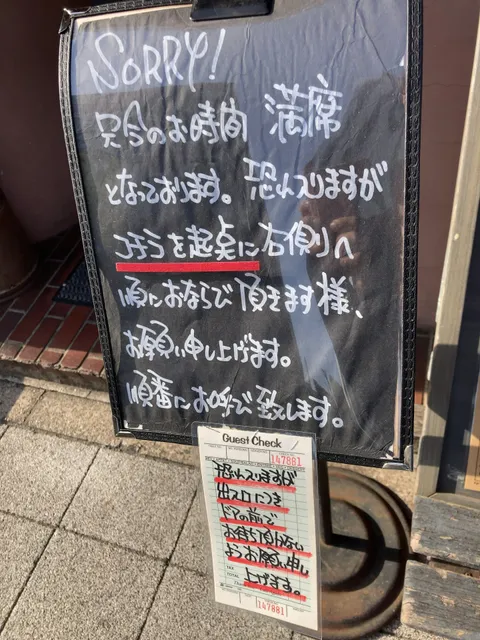 SORRY!
只今のお時間 満席
となっております。恐れ入りますが
コチラを起点に右側へ
順におならび頂きます様、
お願い申し上げます。
順番にお呼び致します。
Guest Check
147881
恐れ入りますが
出入口につき
ドアの前で
お待ち頂かない
ようお願い申し
上げます。
TAX
TOTAL
147881